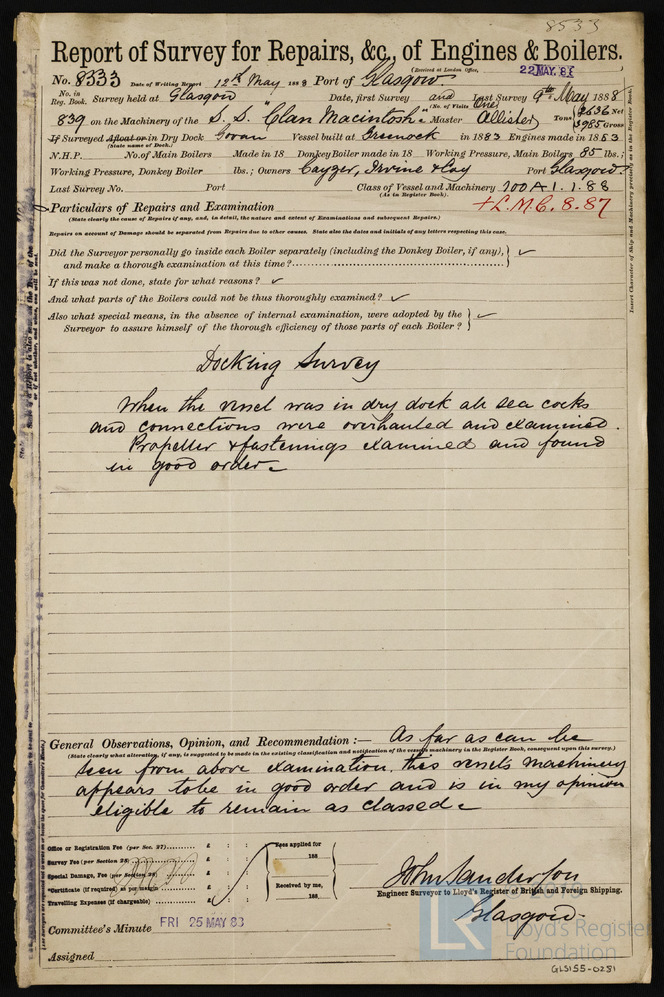 8533
Report of Survey for Repairs, &c., of Engines & Boilers.
(Received at London Office, 22 MAY. 88
No. 8533 Date of Writing Report 12th May 1888 Port of Glasgow
No. in Reg. Book. Survey held at Glasgow Date, first Survey and Last Survey 9th May 1888
(No. of Visits One)
839 on the Machinery of the S.S. "Clan Macintosh" Master Allister Tons 2636 Net 3985 Gross
If Surveyed Afloat or in Dry Dock Govan Vessel built at Greenock in 1883 Engines made in 1853
(State name of Dock.)
N.H.P. No. of Main Boilers Made in 18 Donkey Boiler made in 18 Working Pressure, Main Boilers 85 lbs.;
Working Pressure, Donkey Boiler lbs.; Owners Cayzer, Irvine & Coy Port Glasgow
Last Survey No. Port Class of Vessel and Machinery 100A1.1.88
(As in Register Book.)
Particulars of Repairs and Examination +L.M.C. 8.87
(State clearly the cause of Repairs if any, and, in detail, the nature and extent of Examinations and subsequent Repairs.)
Repairs on account of Damage should be separated from Repairs due to other causes. State also the dates and initials of any letters respecting this case.
Did the Surveyor personally go inside each Boiler separately (including the Donkey Boiler, if any), ✓
and make a thorough examination at this time?
If this was not done, state for what reasons? ✓
And what parts of the Boilers could not be thus thoroughly examined? ✓
Also what special means, in the absence of internal examination, were adopted by the ✓
Surveyor to assure himself of the thorough efficiency of those parts of each Boiler?
Insert Character of Ship and Machinery precisely as in the Register Book.
Docking Survey
When the vessel was in dry dock all sea cocks
and connections were overhauled and examined.
Propeller & fastenings examined and found
in good order
General Observations, Opinion, and Recommendation :— As far as can be
(State clearly what alteration, if any, is suggested to be made in the existing classification and notification of the vessel's machinery in the Register Book, consequent upon this survey.)
seen from above examination, this vessel's machinery
appears to be in good order and is in my opinion
eligible to remain as classed
Office or Registration Fee (per Sec. 27) £ : :
Survey Fee (per Section 28) £ : :
Special Damage, Fee (per Section 28) £ : :
*Certificate (if required) as per margin £ : :
Travelling Expenses (if chargeable) £ : :
Fees applied for
188
Received by me,
188
John Sanderson
Engineer Surveyor to Lloyd's Register of British and Foreign Shipping.
Glasgow
Committee's Minute FRI 25 MAY 83
Assigned
LR
Lloyd's Register
Foundation
GLS155-0281